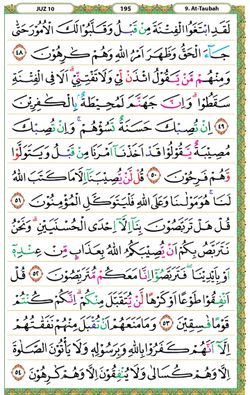 JUZ 10 195 9. At-Taubah
لَقَدِ ابْتَغَوُا الْفِتْنَةَ مِنْ قَبْلُ وَقَلَّبُوْا لَكَ الْاُمُوْرَ حَتّٰى
جَاۤءَ الْحَقُّ وَظَهَرَ اَمْرُ اللّٰهِ وَهُمْ كٰرِهُوْنَ ٤٨
وَمِنْهُمْ مَّنْ يَّقُوْلُ ائْذَنْ لِّيْ وَلَا تَفْتِنِّيْۗ اَلَا فِى الْفِتْنَةِ
سَقَطُوْاۗ وَاِنَّ جَهَنَّمَ لَمُحِيْطَةٌ ۢ بِالْكٰفِرِيْنَ
٤٩ اِنْ تُصِبْكَ حَسَنَةٌ تَسُؤْهُمْۚ وَاِنْ تُصِبْكَ
مُصِيْبَةٌ يَّقُوْلُوْا قَدْ اَخَذْنَآ اَمْرَنَا مِنْ قَبْلُ وَيَتَوَلَّوْا
وَّهُمْ فَرِحُوْنَ ٥٠ قُلْ لَّنْ يُّصِيْبَنَآ اِلَّا مَا كَتَبَ اللّٰهُ
لَنَاۚ هُوَ مَوْلٰىنَا وَعَلَى اللّٰهِ فَلْيَتَوَكَّلِ الْمُؤْمِنُوْنَ ٥١
قُلْ هَلْ تَرَبَّصُوْنَ بِنَآ اِلَّآ اِحْدَى الْحُسْنَيَيْنِۗ وَنَحْنُ
نَتَرَبَّصُ بِكُمْ اَنْ يُّصِيْبَكُمُ اللّٰهُ بِعَذَابٍ مِّنْ عِنْدِهٖٓ
اَوْ بِاَيْدِيْنَاۖ فَتَرَبَّصُوْٓا اِنَّا مَعَكُمْ مُّتَرَبِّصُوْنَ ٥٢ قُلْ
اَنْفِقُوْا طَوْعًا اَوْ كَرْهًا لَّنْ يُّتَقَبَّلَ مِنْكُمْۗ اِنَّكُمْ كُنْتُمْ
قَوْمًا فٰسِقِيْنَ ٥٣ وَمَا مَنَعَهُمْ اَنْ تُقْبَلَ مِنْهُمْ نَفَقٰتُهُمْ
اِلَّآ اَنَّهُمْ كَفَرُوْا بِاللّٰهِ وَبِرَسُوْلِهٖ وَلَا يَأْتُوْنَ الصَّلٰوةَ
اِلَّا وَهُمْ كُسَالٰى وَلَا يُنْفِقُوْنَ اِلَّا وَهُمْ كٰرِهُوْنَ ٥٤